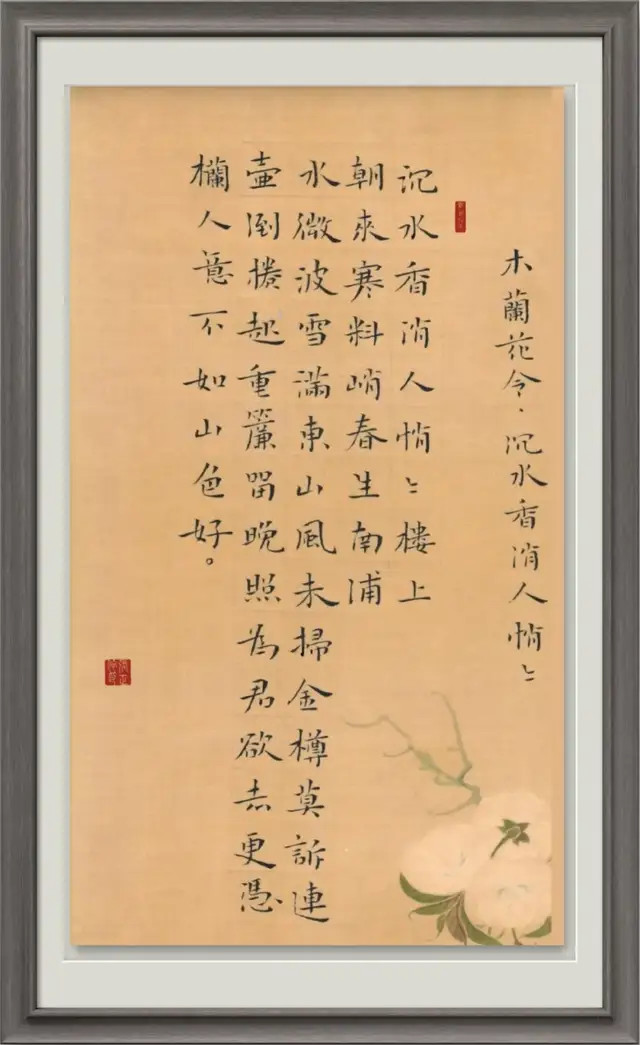 木蘭花令·沉水香消人悄〻
沉水香消人悄〻樓上
朝來寒料峭春生南浦
水微波雪滿東山風未掃金樽莫訴連
壺倒捲起重簾留晚照為君欲去更憑
欄人意不如山色好。